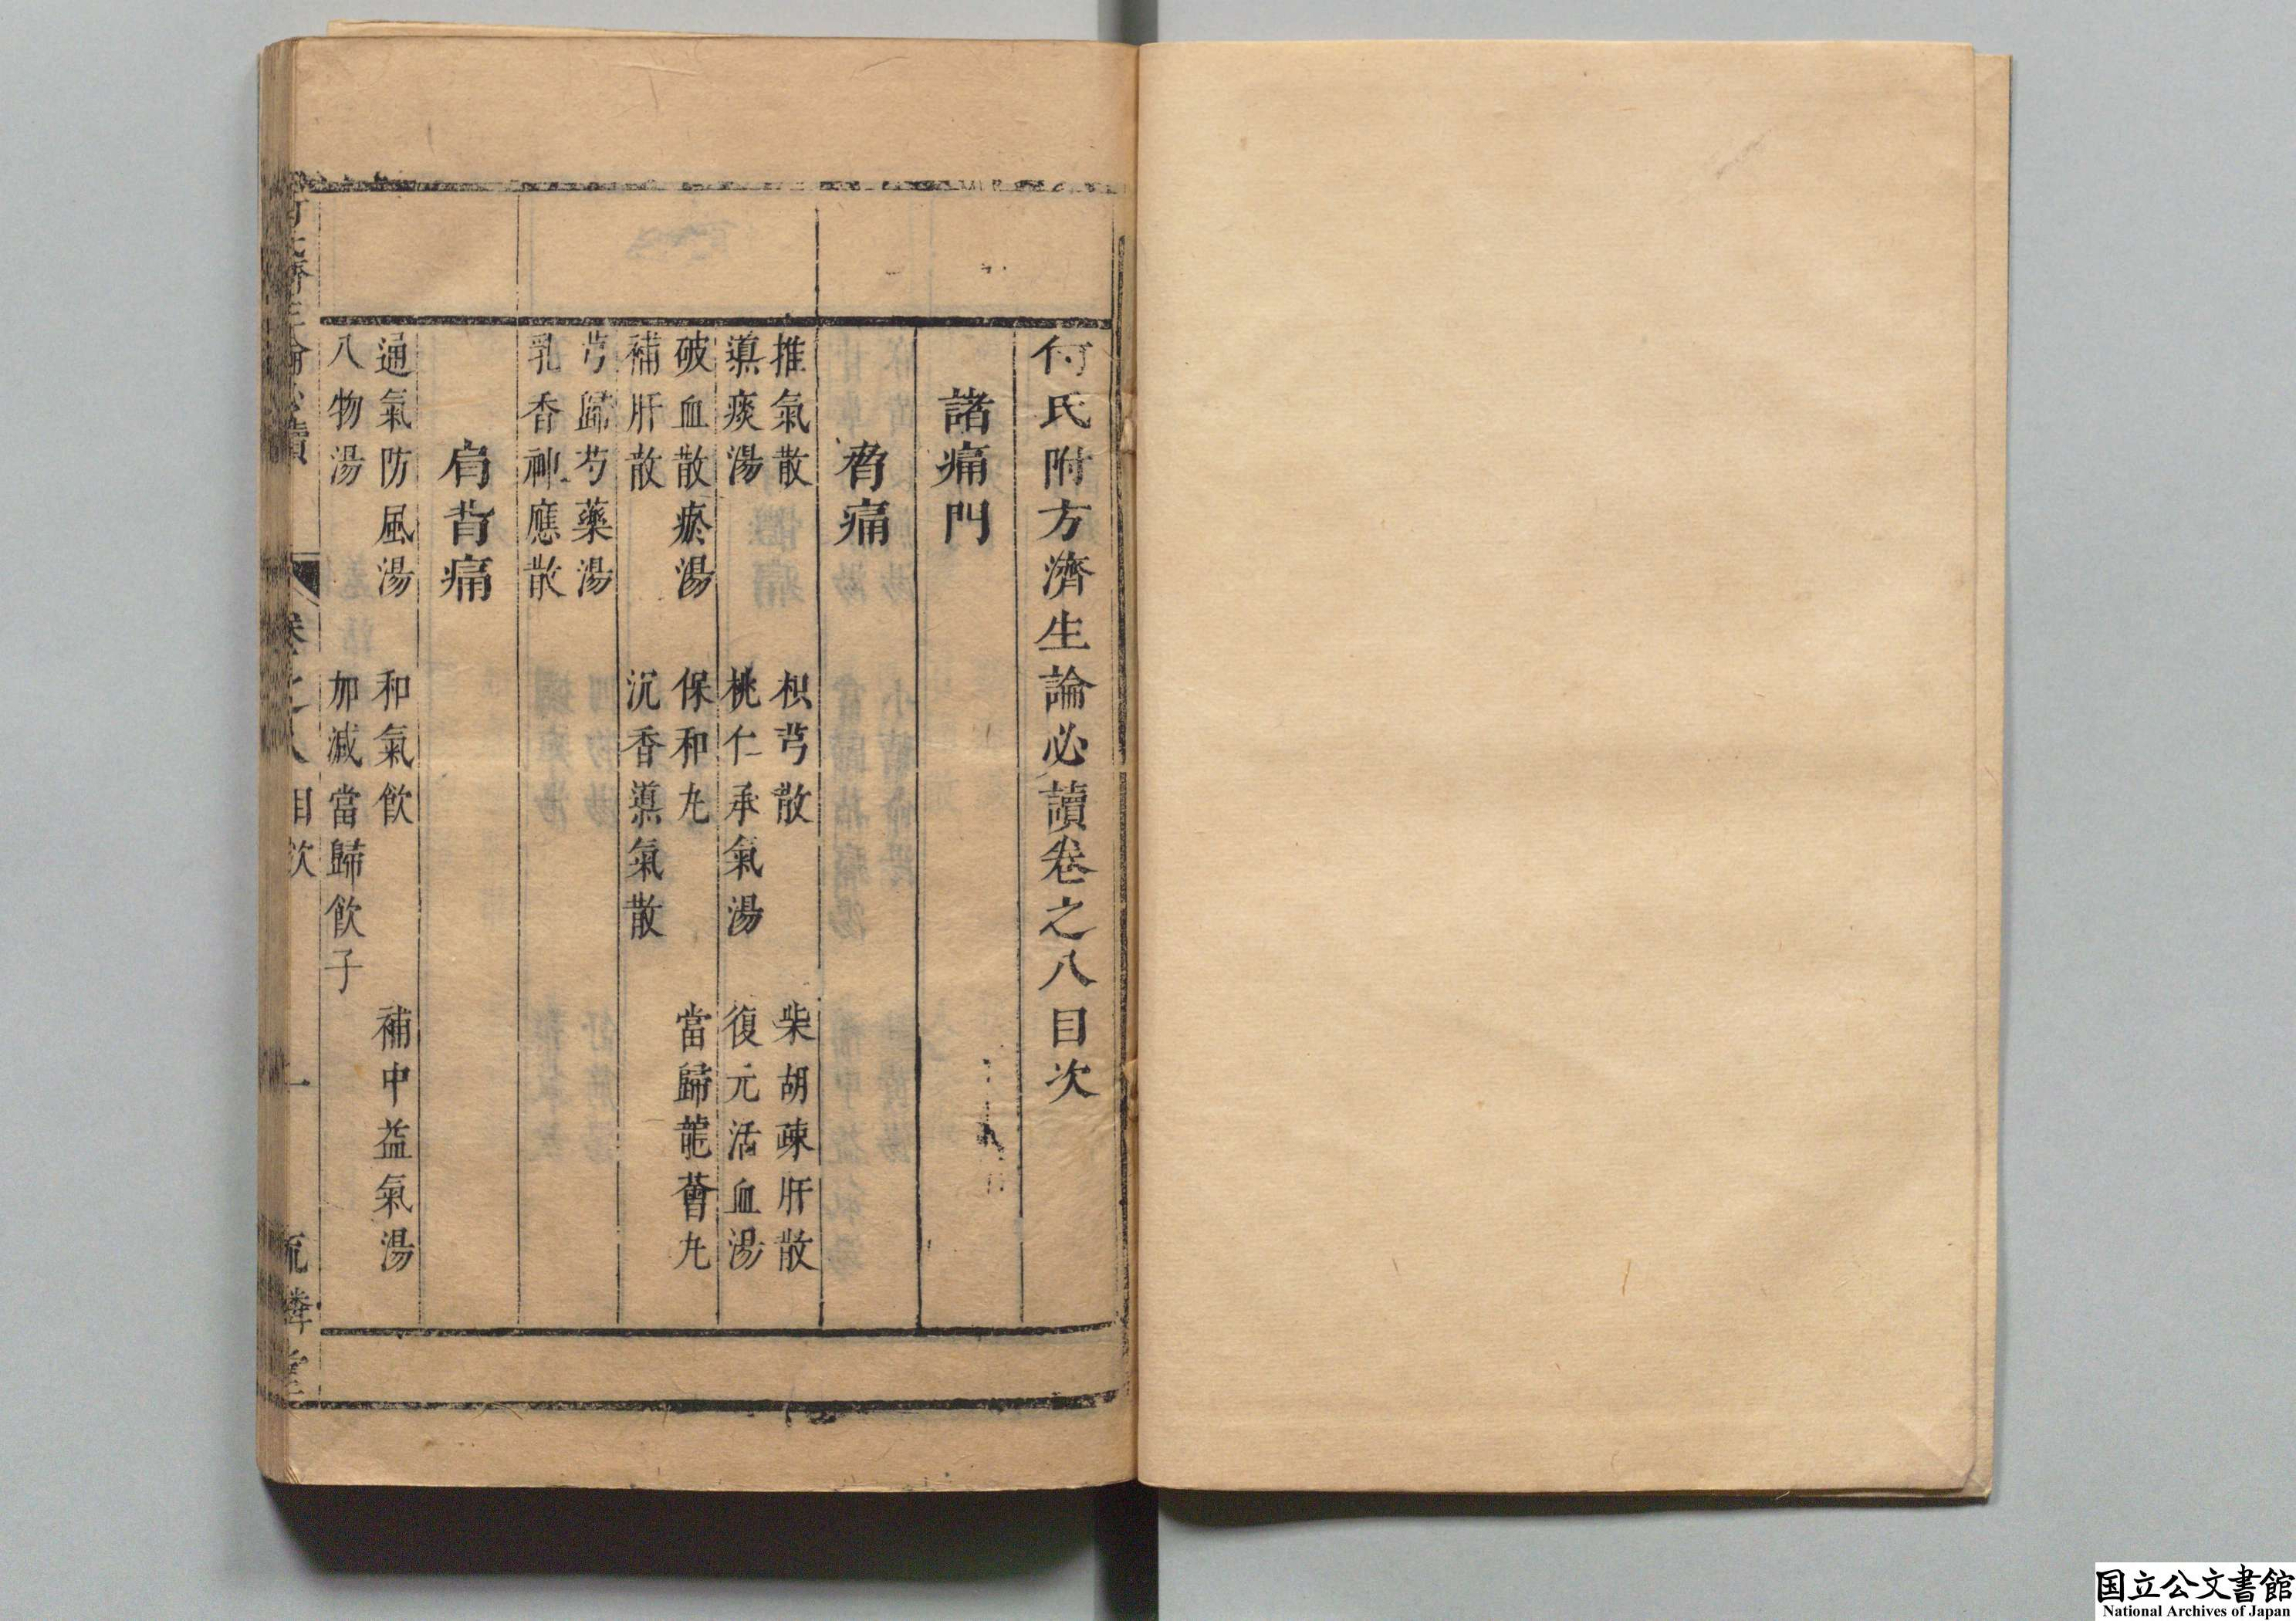 何氏附方濟生論必讀卷之八目次
諸痛門
脅痛
推氣散　枳芎散　柴胡疎肝散
導痰湯　桃仁承氣湯　復元活血湯
破血散瘀湯　保和丸　當歸龍薈丸
補肝散　沉香導氣散
芎歸芍藥湯
乳香神應散
肩背痛
通氣防風湯　和氣飲　補中益氣湯
八物湯　加減當歸飲子
卷之八　目次　一
国立公文書館
National Archives of Japan